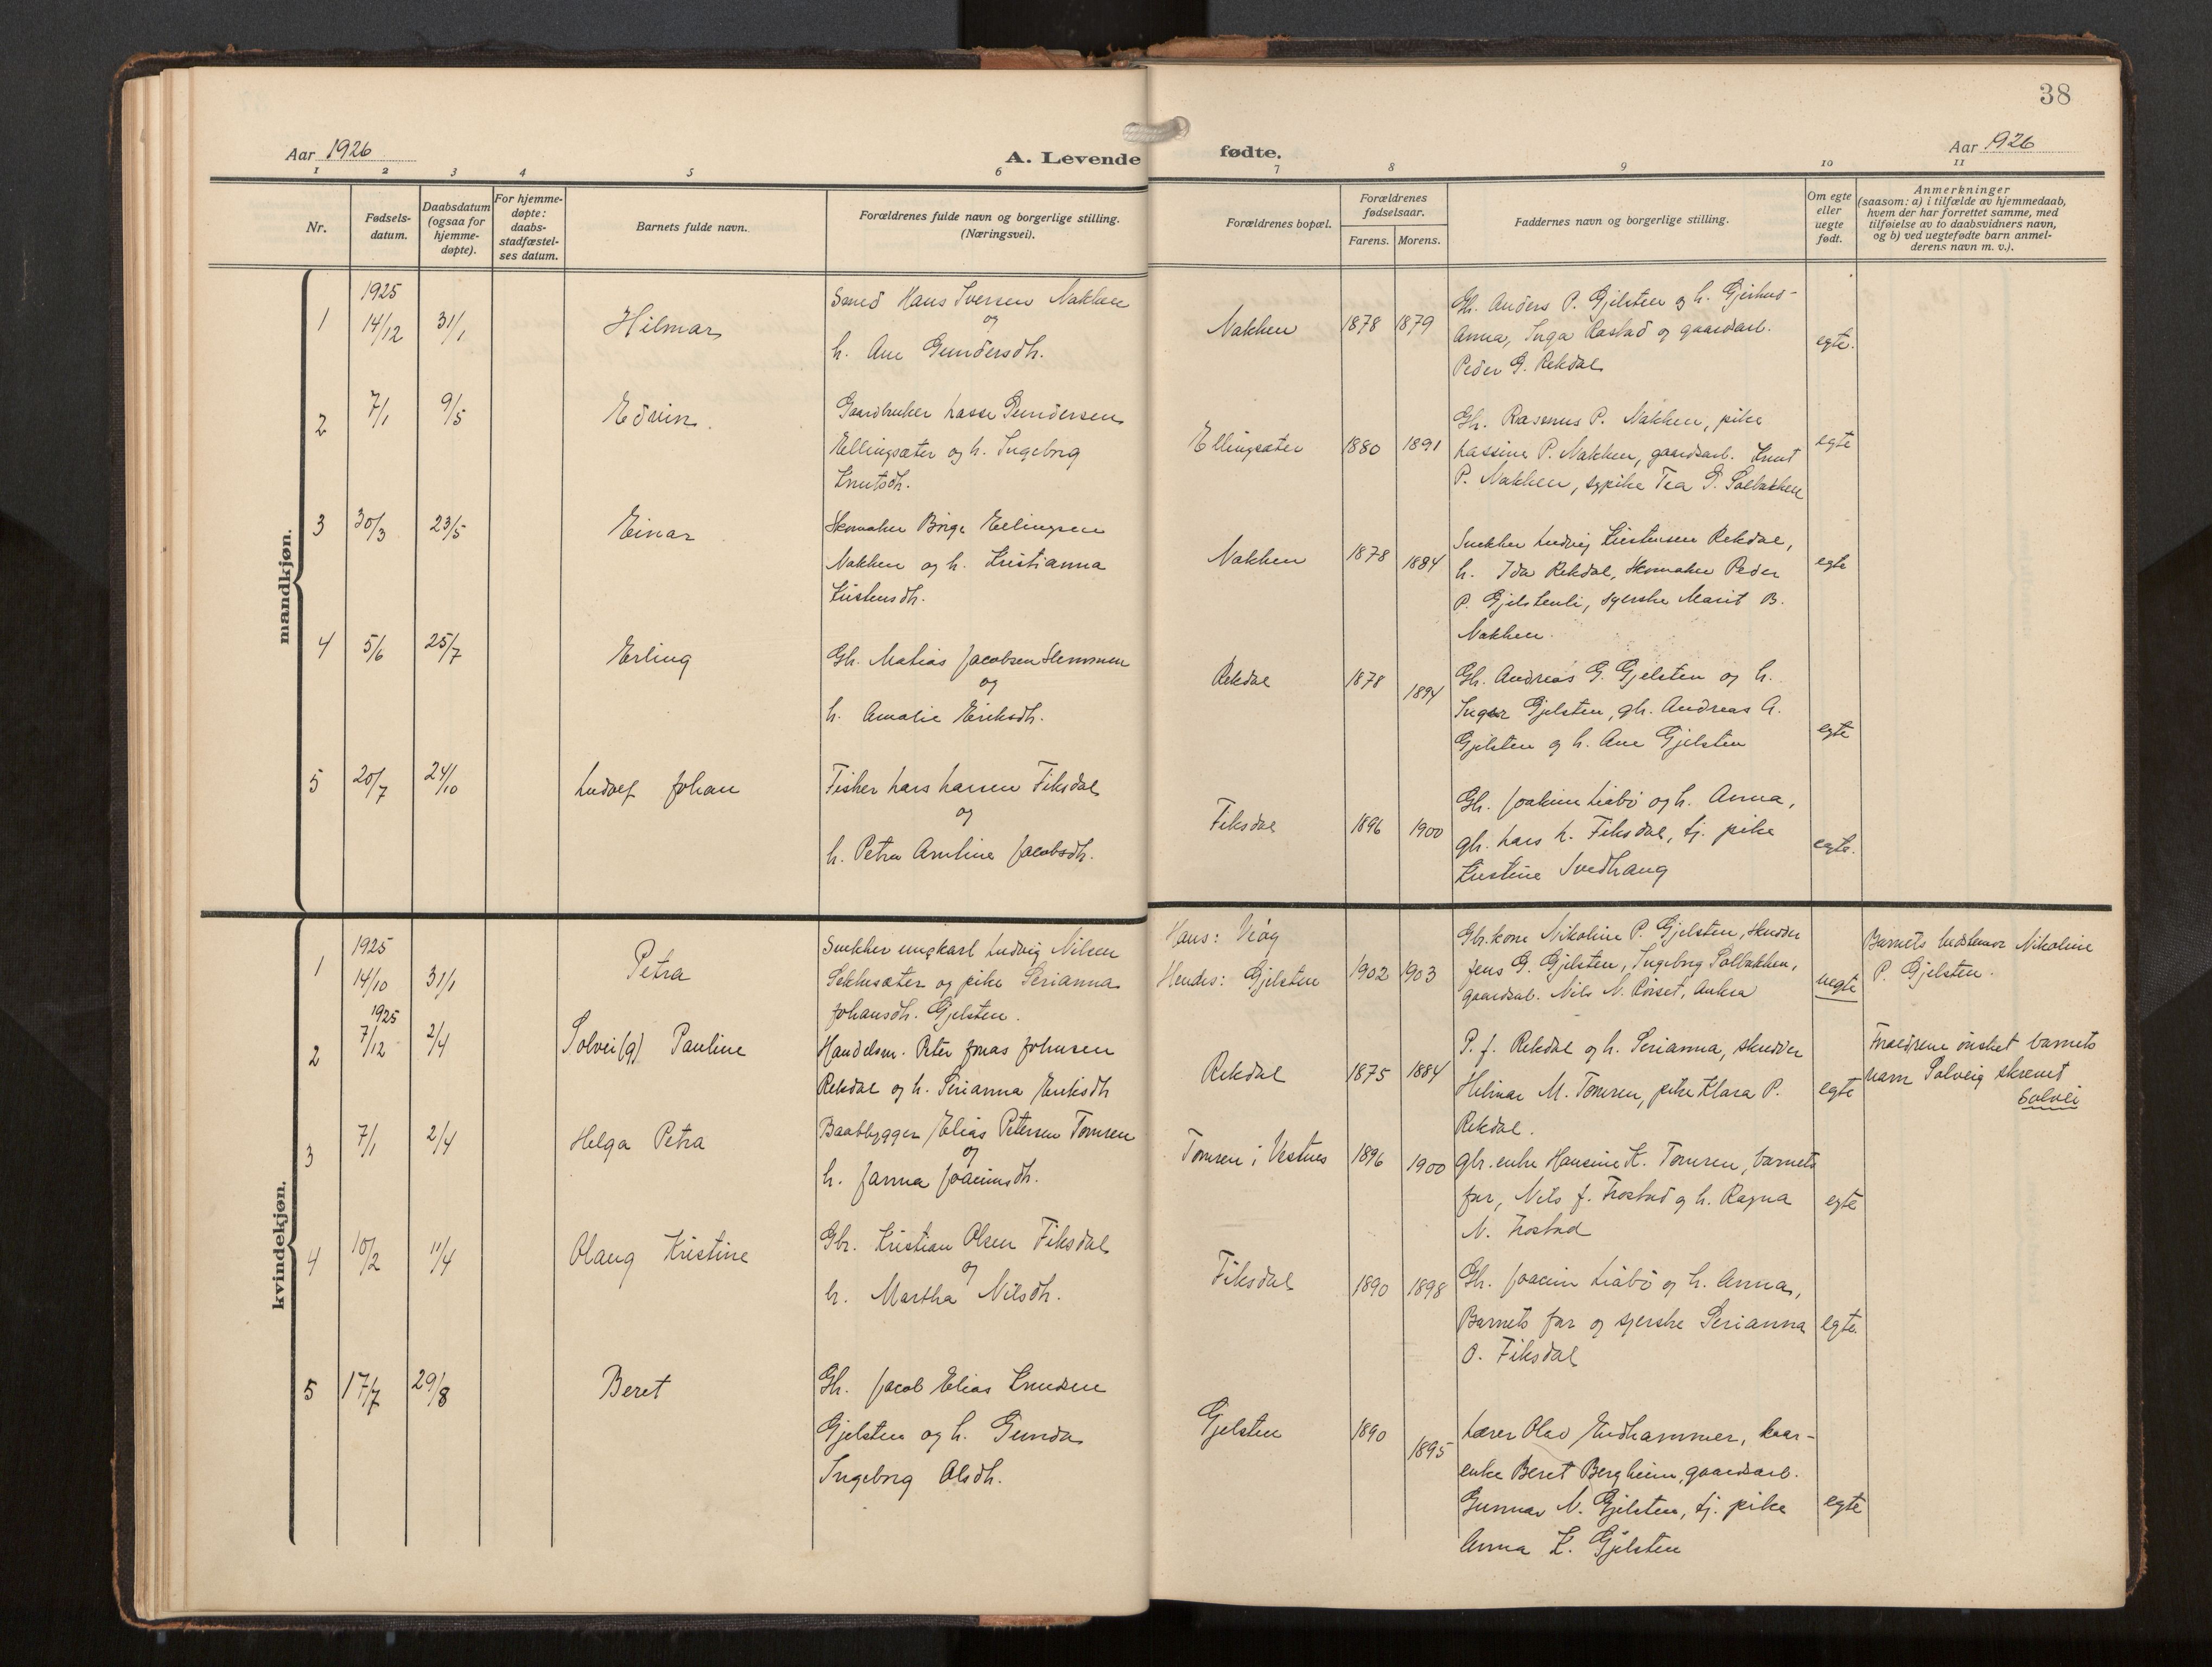 38
Aar 1926
A. Levende fødte.
Aar 1926
1 2 3 4 5 6 7 8 9 10 11
Nr.
Fødsels-
datum.
Daabsdatum
(ogsaa for
hjemme-
døpte).
For hjemme-
døpte:
daabs-
stadfæstel-
ses datum.
Barnets fulde navn.
Forældrenes fulde navn og borgerlige stilling.
(Næringsvei).
Forældrenes bopæl.
Forældrenes
fødselsaar.
Farens. Morens.
Faddernes navn og borgerlige stilling.
Om egte
eller
uegte
født.
Anmerkninger
(saasom: a) i tilfælde av hjemmedaab,
hvem der har forrettet samme, med
tilføielse av to daabsvidners navn,
og b) ved uegtefødte barn anmel-
derens navn m. v.).
mandkjøn.
1
1925
14/12
31/1
Hilmar
Smed Hans Iversen Nakken
og
h. Ane Gundersdh.
Nakken
1878 1879
Gb. Anders P. Gjelsten og h. Gjerhud-
Anna, Inga Rastad og gaardsarb.
Peder G. Rekdal
egte.
2
7/1
9/5
Edvin.
Gaardbruker Lasse Gundersen
Ellingsæter og h. Ingeborg
Knutsdh.
Ellingsæter
1880 1891
Gb. Rasmus P. Nakken, pike
Lassine P. Nakken, gaardsarb. Knut
P. Nakken, sypike Tea G. Solbakken
egte
3
30/3
23/5
Einar
Skomaker Börge Ellingsen
Nakken og h. Kristianna
Kristensdh.
Nakken
1878 1884
Snekker Ludvig Kristensen Rekdal,
h. Ida Rekdal, skomaker Peder
P. Gjelstenli, syerske Marit B.
Nakken.
egte
4
5/6
25/7
Erling
Gb. Matias Jacobsen Slemmen
og
h. Amalie Eriksdh.
Rekdal
1878 1894
Gb. Andreas G. Gjelsten og h.
Inger Gjelsten, gb. Andreas A.
Gjelsten og h. Ane Gjelsten
egte
5
20/7
24/10
Ludolf Johan
Fisker Lars Larsen Fiksdal
og
h. Petra Amline Jacobsdh.
Fiksdal
1896 1900
Gb. Joakim Liabö og h. Anna,
gb. Lars L. Fiksdal, tj. pike
Kristine Svedhaug
egte.
kvindekjøn.
1
1925
14/10
31/1
Petra
Snekker ungkarl Ludvig Nilsen
Sekkesæter og pike Serianna
Johansdh. Gjelsten.
Hans: Veöy
Hendes: Gjelsten
1902 1903
Gbr.kone Nikoline P. Gjelsten, skrædder
Jens G. Gjelsten, Ingeborg Solbakken,
gaardsarb. Nils N. Röiset, Aukra
uegte
Barnets bedstemor Nikoline
P. Gjelsten.
2
1925
7/12
2/4
Solvei(g) Pauline
Handelsm. Peter Jonas Johnsen
Rekdal og h. Serianna Eriksdh
Rekdal
1875 1884
P. J. Rekdal og h. Serianna, skrædder
Hilmar M. Tomren, pike Klara P.
Rekdal.
egte
Forældrene önsket barnets
navn Solveig skrevet
Solvei
3
7/1
2/4
Helga Petra
Baatbygger Elias Petersen Tomren
og
h. Janna Joacimsdh.
Tomren i Vestnes
1896 1900
gbr. enke Hansine K. Tomren, barnets
far, Nils J. Frostad og h. Ragna
N. Frostad
egte
4
10/2
11/4
Olaug Kristine
Gbr. Kristian Olsen Fiksdal
og
h. Martha Nilsdh.
Fiksdal
1890 1898
Gb. Joacim Liabö og h. Anna,
Barnets far og syerske Serianna
O. Fiksdal
egte.
5
17/7
29/8
Beret
Gb. Jacob Elias Knudsen
Gjelsten og h. Gunda
Ingeborg Olsdh.
Gjelsten
1890 1895
Lærer Olav Endhammer, kaar-
enke Beret Bergheim, gaardsarb.
Gunnar N. Gjelsten, tj. pike
Anna K. Gjelsten
egte